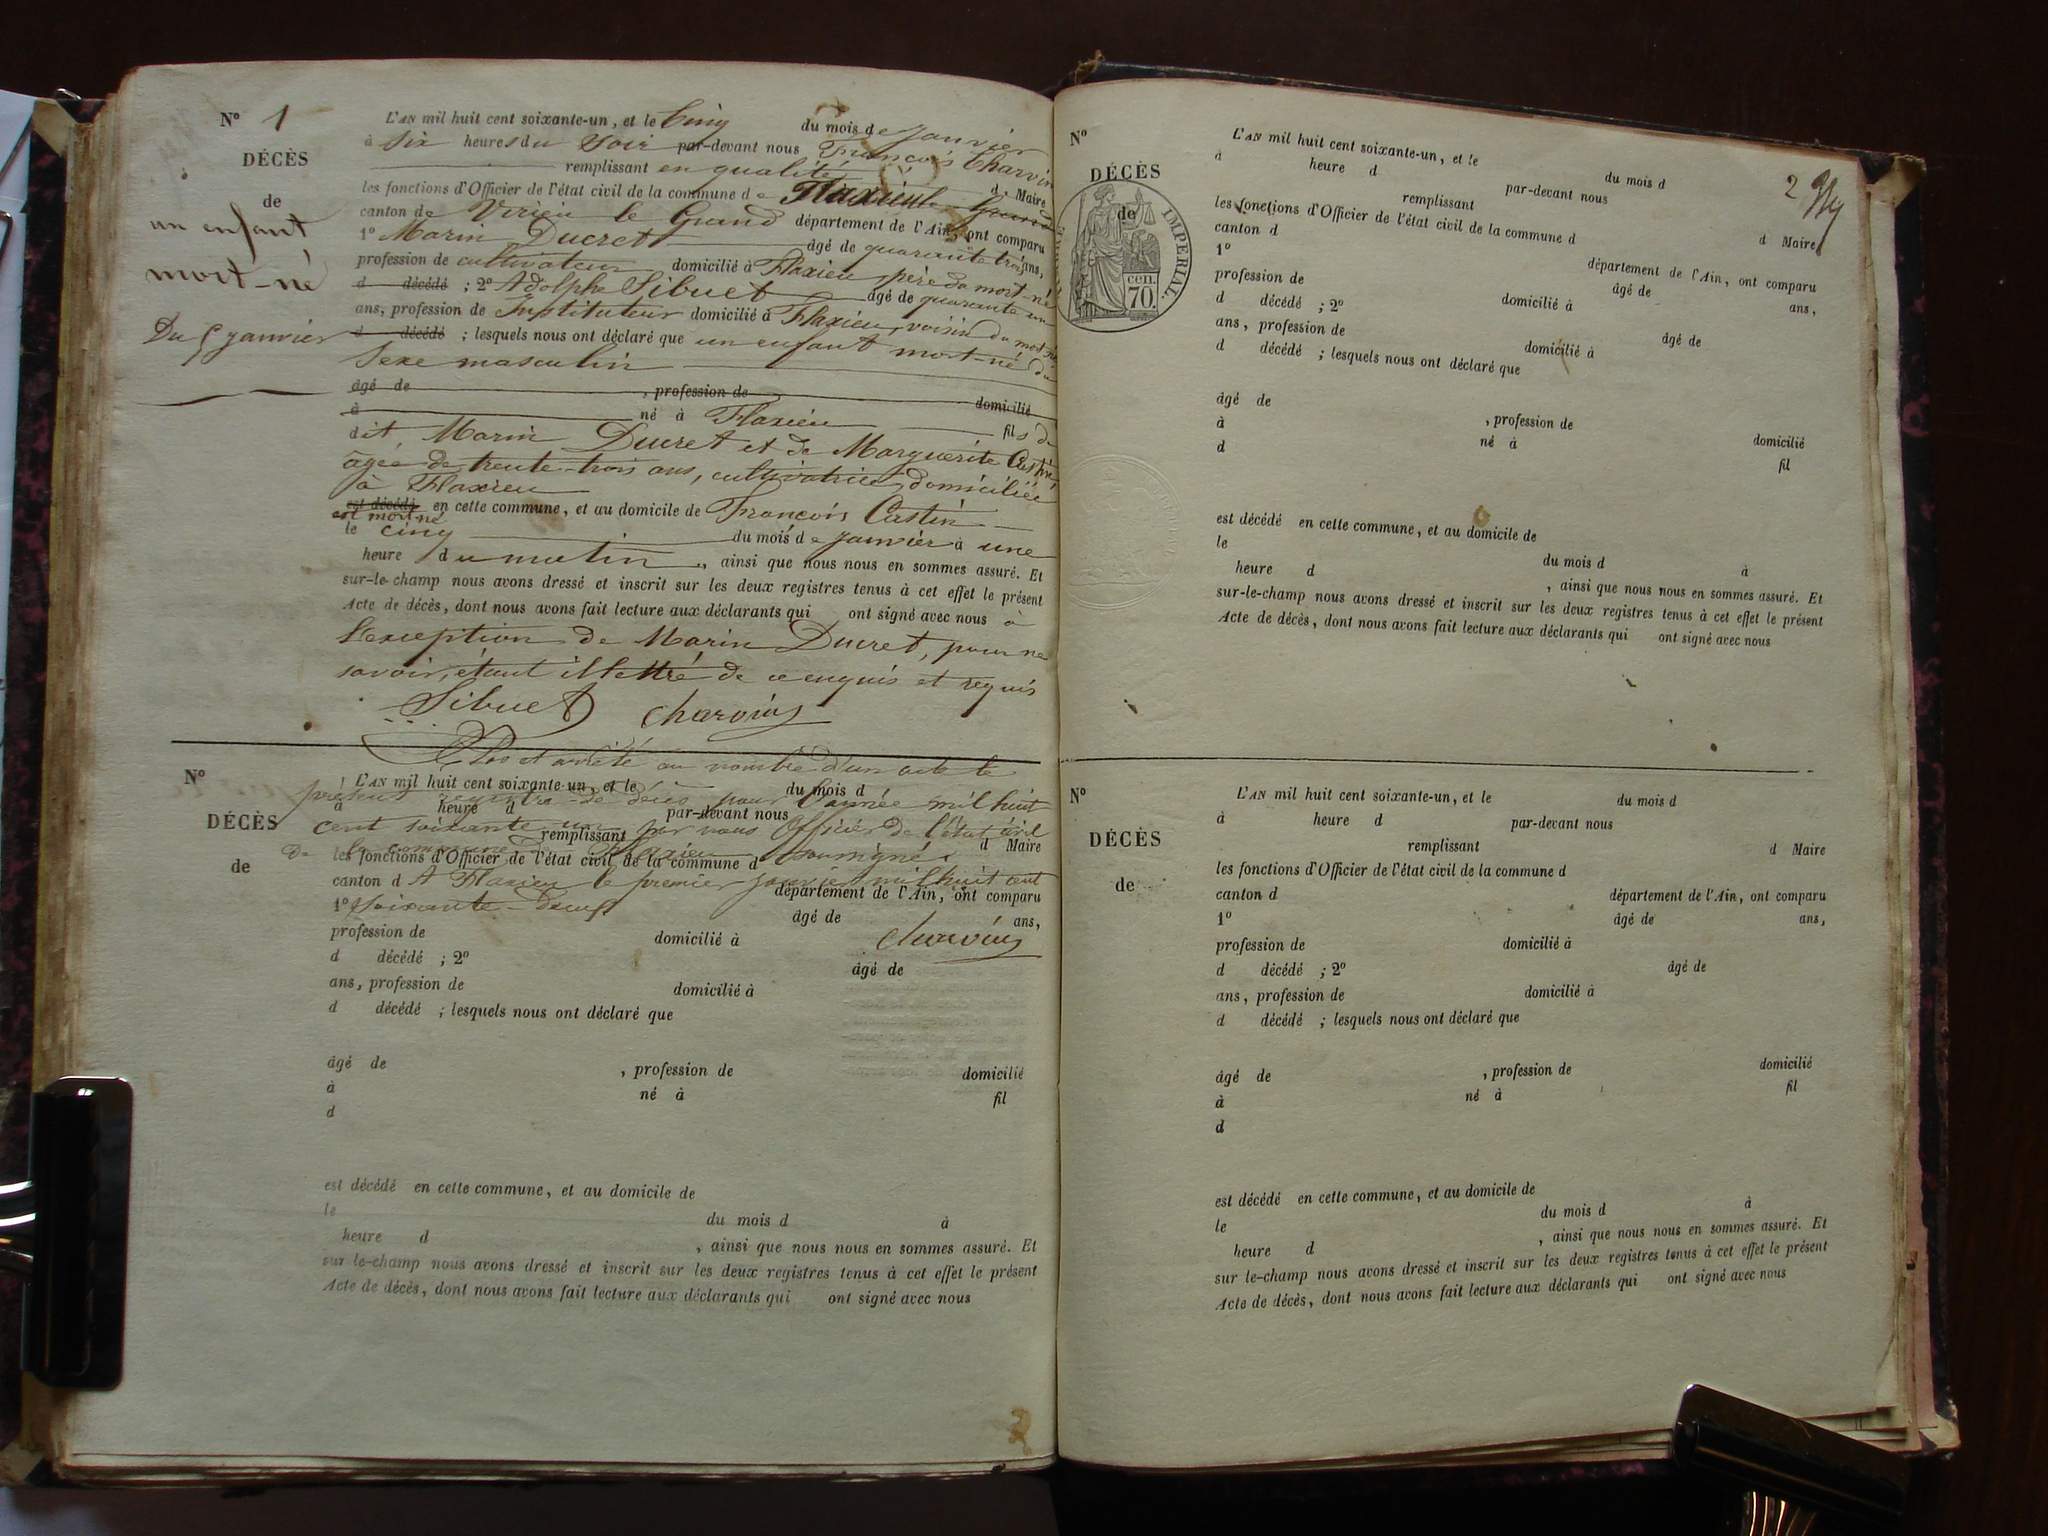 N° 1
DÉCÈS
de
un enfant
mort-né
Du 5 janvier
L'AN mil huit cent soixante-un, et le Cinq du mois de janvier
à six heures du soir par-devant nous François Charvin
remplissant en qualité d Maire
les fonctions d'Officier de l'état civil de la commune de Flaxieu
canton de Virieu le Grand département de l'Ain, ont comparu
1° Marin Ducret âgé de quarante trois ans,
profession de cultivateur domicilié à Flaxieu père du mort-né
d décédé ; 2° Adolphe Sibuet âgé de quarante un
ans, profession de Instituteur domicilié à Flaxieu, voisin du mort-né
d décédé ; lesquels nous ont déclaré que un enfant mort-né du
sexe masculin
âgé de , profession de domicilié
à né à Flaxieu fils de
dit, Marin Ducret et de Marguerite Castin
âgée de trente-trois ans, cultivatrice domiciliée
à Flaxieu
est décédé en cette commune, et au domicile de François Castin
est mort-né
le cinq du mois de janvier à une
heure du matin, ainsi que nous nous en sommes assuré. Et
sur-le-champ nous avons dressé et inscrit sur les deux registres tenus à cet effet le présent
Acte de décès, dont nous avons fait lecture aux déclarants qui ont signé avec nous à
l'exception de Marin Ducret, pour ne
savoir, étant illettré de ce enquis et requis
Sibuet Charvin
Clos et arrêté au nombre d'un acte le
présent registre de décès pour l'année mil huit
cent soixante-un par nous Officier de l'état civil
de la commune de Flaxieu soussigné.
A Flaxieu le premier janvier mil huit cent
soixante-deux
Charvin
N°
DÉCÈS
de
L'AN mil huit cent soixante-un, et le du mois d
à heure d par-devant nous
remplissant d Maire
les fonctions d'Officier de l'état civil de la commune d
canton d département de l'Ain, ont comparu
1° âgé de ans,
profession de domicilié à
d décédé ; 2° âgé de
ans, profession de domicilié à
d décédé ; lesquels nous ont déclaré que
âgé de , profession de domicilié
à né à fil
d
est décédé en cette commune, et au domicile de
le du mois d à
heure d , ainsi que nous nous en sommes assuré. Et
sur le-champ nous avons dressé et inscrit sur les deux registres tenus à cet effet le présent
Acte de décès, dont nous avons fait lecture aux déclarants qui ont signé avec nous
2
N°
DÉCÈS
de
IMPERIAL.
70 cen.
L'AN mil huit cent soixante-un, et le du mois d
à heure d par-devant nous
remplissant d Maire
les fonctions d'Officier de l'état civil de la commune d
canton d département de l'Ain, ont comparu
1° âgé de ans,
profession de domicilié à
d décédé ; 2° âgé de
ans, profession de domicilié à
d décédé ; lesquels nous ont déclaré que
âgé de , profession de domicilié
à né à fil
d
est décédé en cette commune, et au domicile de
le du mois d à
heure d , ainsi que nous nous en sommes assuré. Et
sur-le-champ nous avons dressé et inscrit sur les deux registres tenus à cet effet le présent
Acte de décès, dont nous avons fait lecture aux déclarants qui ont signé avec nous
N°
DÉCÈS
de
L'AN mil huit cent soixante-un, et le du mois d
à heure d par-devant nous
remplissant d Maire
les fonctions d'Officier de l'état civil de la commune d
canton d département de l'Ain, ont comparu
1° âgé de ans,
profession de domicilié à
d décédé ; 2° âgé de
ans, profession de domicilié à
d décédé ; lesquels nous ont déclaré que
âgé de , profession de domicilié
à né à fil
d
est décédé en cette commune, et au domicile de
le du mois d à
heure d , ainsi que nous nous en sommes assuré. Et
sur le-champ nous avons dressé et inscrit sur les deux registres tenus à cet effet le présent
Acte de décès, dont nous avons fait lecture aux déclarants qui ont signé avec nous